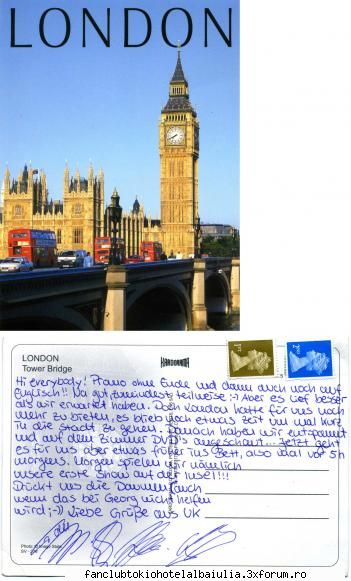 LONDON
LONDON
Tower Bridge
1st
2nd
Hi everybody! Promo ohne Ende und dann auch noch auf
Englisch!! Na gut, zumindest teilweise :-) Aber es lief besser
als wir erwartet haben. Doch London hatte für uns noch
mehr zu bieten, es blieb noch etwas Zeit um mal kurz
in die Stadt zu gehen. Danach haben wir entspannt
und auf dem Zimmer DVD's angeschaut... Jetzt geht
es für uns aber etwas früher ins Bett, also mal vor 5h
morgens. Morgen spielen wir nämlich
unsere erste Show auf der Insel!!!
Drückt uns die Daumen (auch
wenn das bei Georg nicht helfen
wird ;-)) Liebe Grüße aus UK
fanclubtokiohotelalbaiulia.3xforum.ro